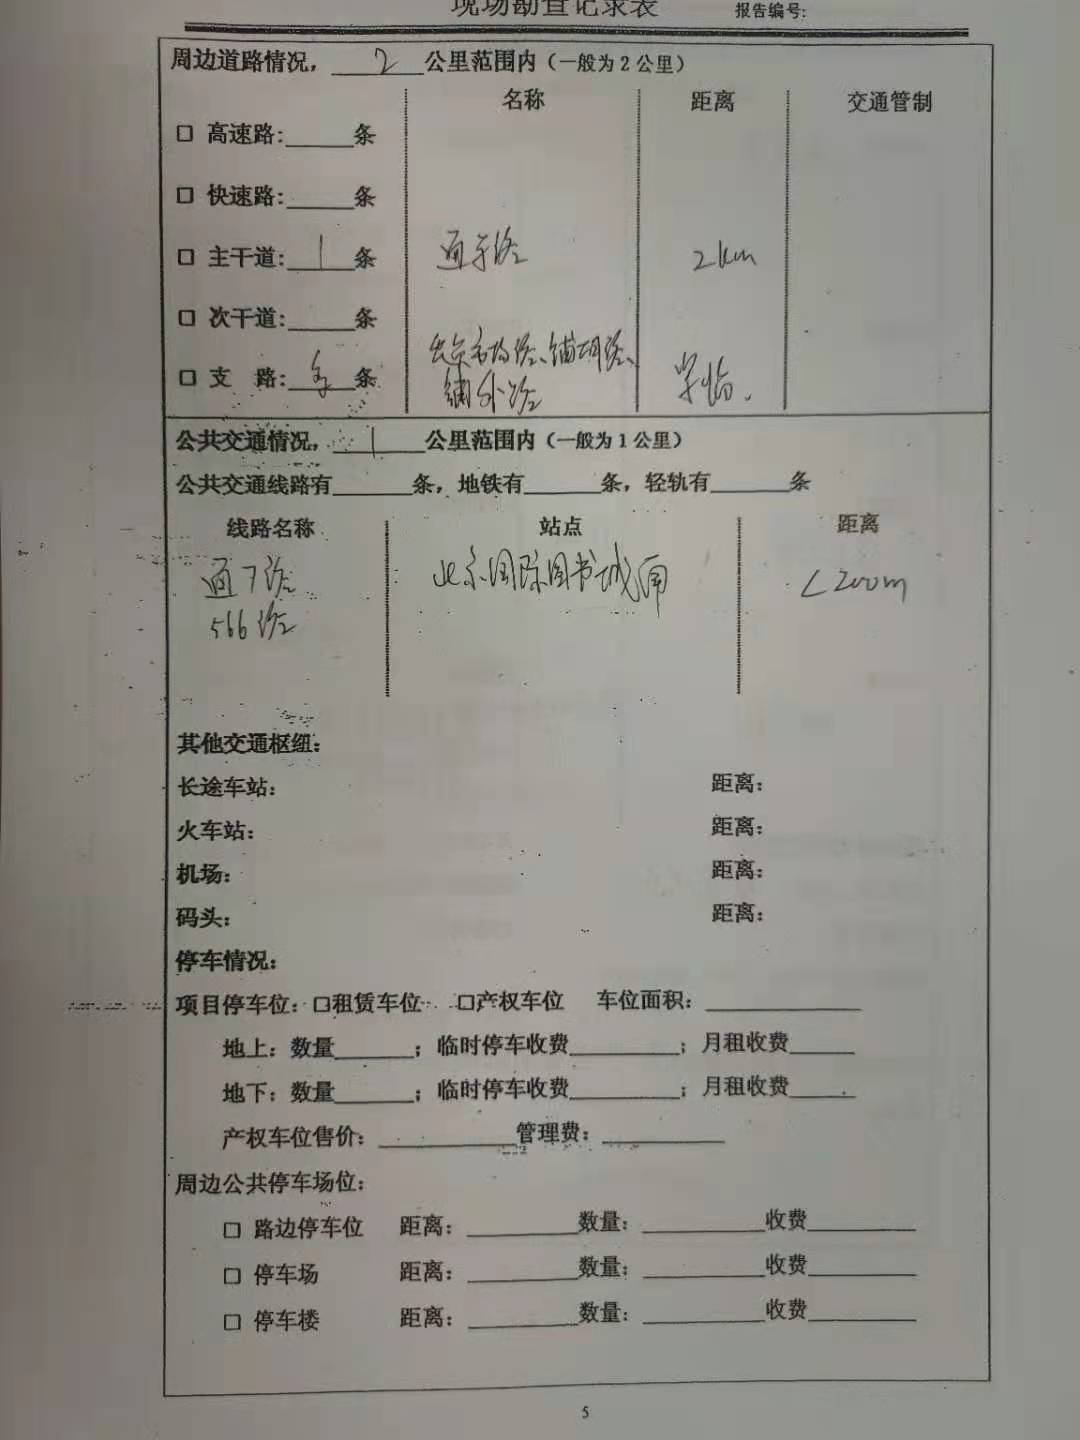 现场勘查记录表 报告编号:
周边道路情况, 2 公里范围内(一般为2公里)
名称 距离 交通管制
□ 高速路:______条
□ 快速路:______条
□ 主干道: 1 条 通于路 2km
□ 次干道:______条
□ 支 路: 多 条 市场路、铺胡路、 紧临.
铺外路
公共交通情况, 1 公里范围内(一般为1公里)
公共交通线路有______条,地铁有______条,轻轨有______条
线路名称 站点 距离
通7路 北京国际图书城南 <200m
566路
其他交通枢纽:
长途车站: 距离:
火车站: 距离:
机场: 距离:
码头: 距离:
停车情况:
项目停车位:□租赁车位 □产权车位 车位面积:______
地上:数量______;临时停车收费______;月租收费______
地下:数量______;临时停车收费______;月租收费______
产权车位售价:______管理费:______
周边公共停车场位:
□ 路边停车位 距离:______数量:______收费______
□ 停车场 距离:______数量:______收费______
□ 停车楼 距离:______数量:______收费______
5